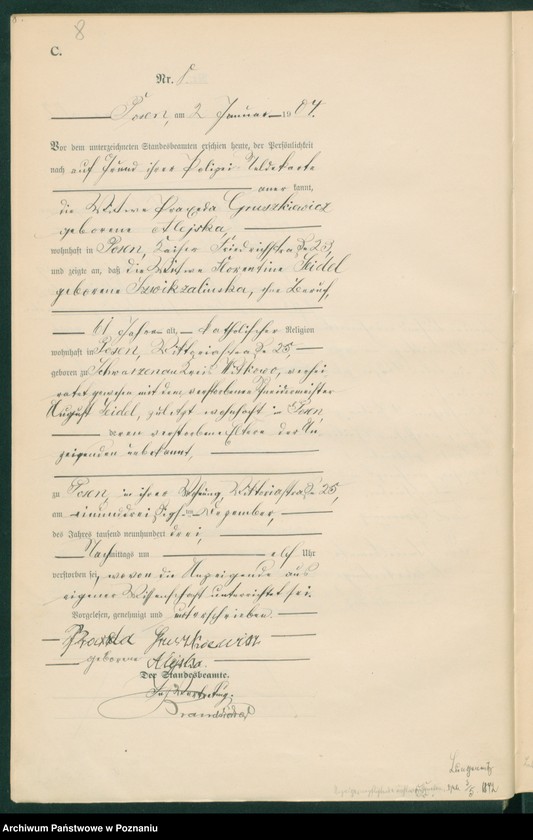 8
C.
Nr. 8
Posen, am 2 Januar 1904.
Vor dem unterzeichneten Standesbeamten erschien heute, der Persönlichkeit
nach auf Grund ihrer Polizei Meldekarte
kannt,
die Wittwe Praxeda Gruszkiewicz
geborene Alejska,
wohnhaft in Posen, Kaiser Friedrichstraße 23,
und zeigte an, daß die Wittwe Florentine Seidel
geborene ohne Beruf,
Jahre alt, katholischer Religion
wohnhaft in Posen, Viktoriastraße 25,
geboren zu Schwarzenau Kreis Witkowo, verhei
ratet gewesen mit dem verstorbenen Schneidermeister
August Seidel, zuletzt wohnhaft in Posen,
deren verstorbene Eltern der An
zeigenden unbekannt,
zu Posen, in ihrer Wohnung, Viktoriastraße 25,
am einunddreißigsten Dezember,
des Jahres tausend neunhundert drei,
Nachmittags um elf Uhr
verstorben sei, wovon die Anzeigende aus
eigener Wissenschaft unterrichtet sei.
Vorgelesen, genehmigt und unterschrieben.
Praxeda Gruszkiewicz
geborene Alejska.
Der Standesbeamte.
In Vertretung.
Archiwum Państwowe w Poznaniu